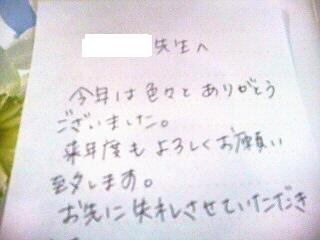 先生へ
今年は色々とありがとう
ございました。
来年度もよろしくお願い
致します。
お先に失礼させていただき